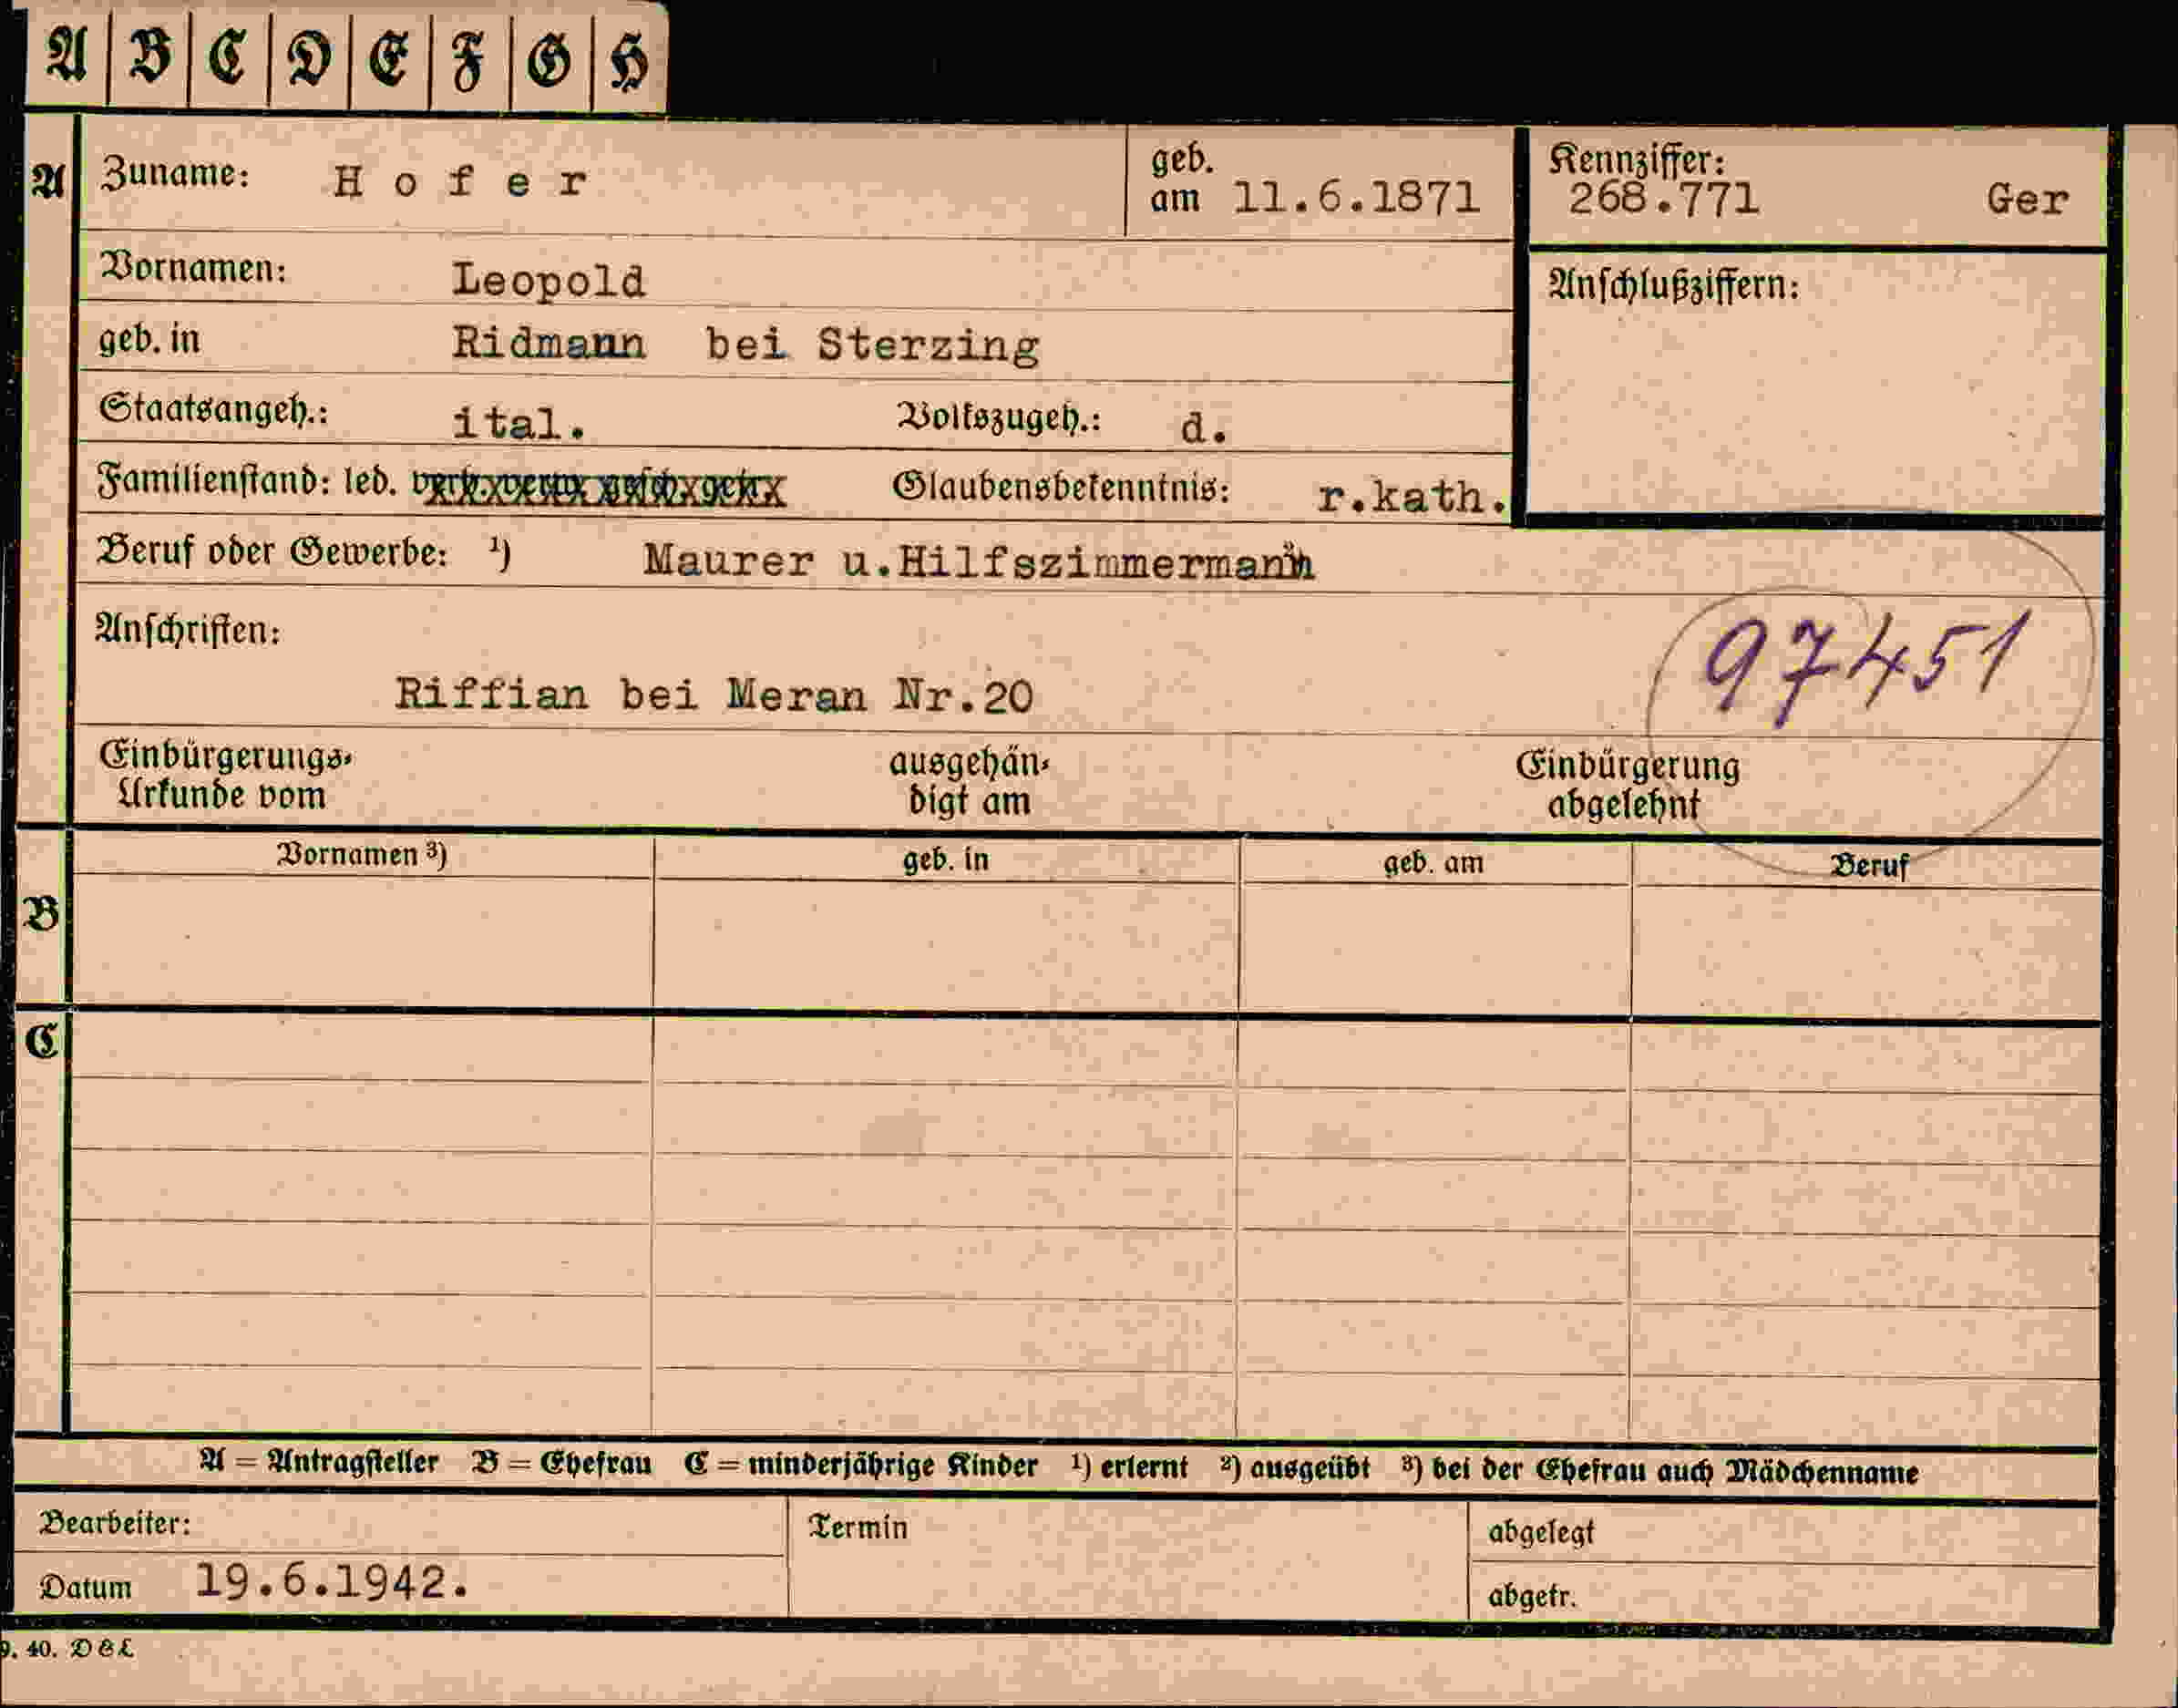 A B C D E F G H
A Zuname: Hofer geb. am 11.6.1871 Kennziffer: 268.771 Ger
Vornamen: Leopold Anschlußziffern:
geb. in Ridmann bei Sterzing
Staatsangeh.: ital. Volkszugeh.: d.
Familienstand: led. Glaubensbekenntnis: r.kath.
Beruf oder Gewerbe: ¹) Maurer u.Hilfszimmermann
Anschriften:
97451
Riffian bei Meran Nr.20
Einbürgerungs- ausgehän- Einbürgerung
Urkunde vom digt am abgelehnt
Vornamen ³) geb. in geb. am Beruf
B
C
A = Antragsteller B = Ehefrau C = minderjährige Kinder ¹) erlernt ²) ausgeübt ³) bei der Ehefrau auch Mädchenname
Bearbeiter: Termin abgelegt
Datum 19.6.1942. abgetr.
9. 40.